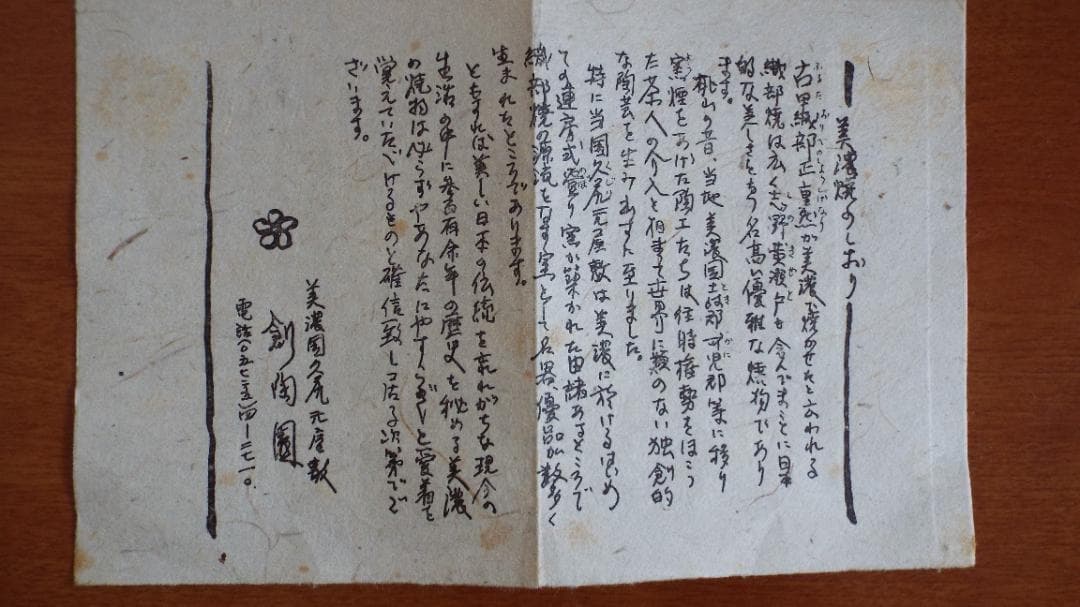 美濃焼のしおり
古田織部正重然が美濃で焼かせたと云われる
織部焼は広く志野黄瀬戸も含んでまことに日本
的な美しさをもつ名高い優雅な焼物であり
ます。
桃山の昔、当地美濃国土岐郡可児郡等に移り
窯煙をあげた陶工たちは往時権勢をほこっ
た茶人の介入と相まって世界に類のない独創的
な陶芸を生み出すに至りました。
特に当園久尻元屋敷は美濃に於けるはじめ
ての連房式登り窯が築かれた由緒あるところで
織部焼の源流をなす窯として名器、優品が数多く
生まれたところであります。
ともすれば美しい日本の伝統を忘れがちな現今の
生活の中に参百有余年の歴史を秘める美濃
の焼物は必らずやあなたにやすらぎと愛着を
覚えていただけるものと確信致して居る次第でご
ざいます。
美濃国久尻元屋敷
創陶園
電話〇五七二五)四ー二七一〇